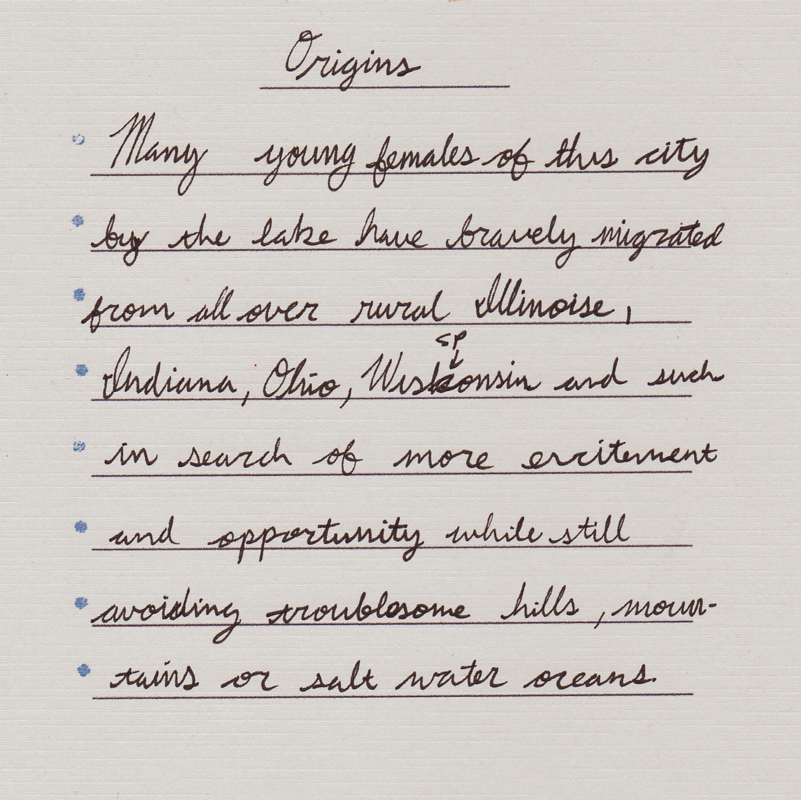 Origins
Many young females of this city
by the lake have bravely migrated
from all over rural Illinoise,
sp
Indiana, Ohio, Wiskonsin and such
in search of more excitement
and opportunity while still
avoiding troublesome hills, moun-
tains or salt water oceans.